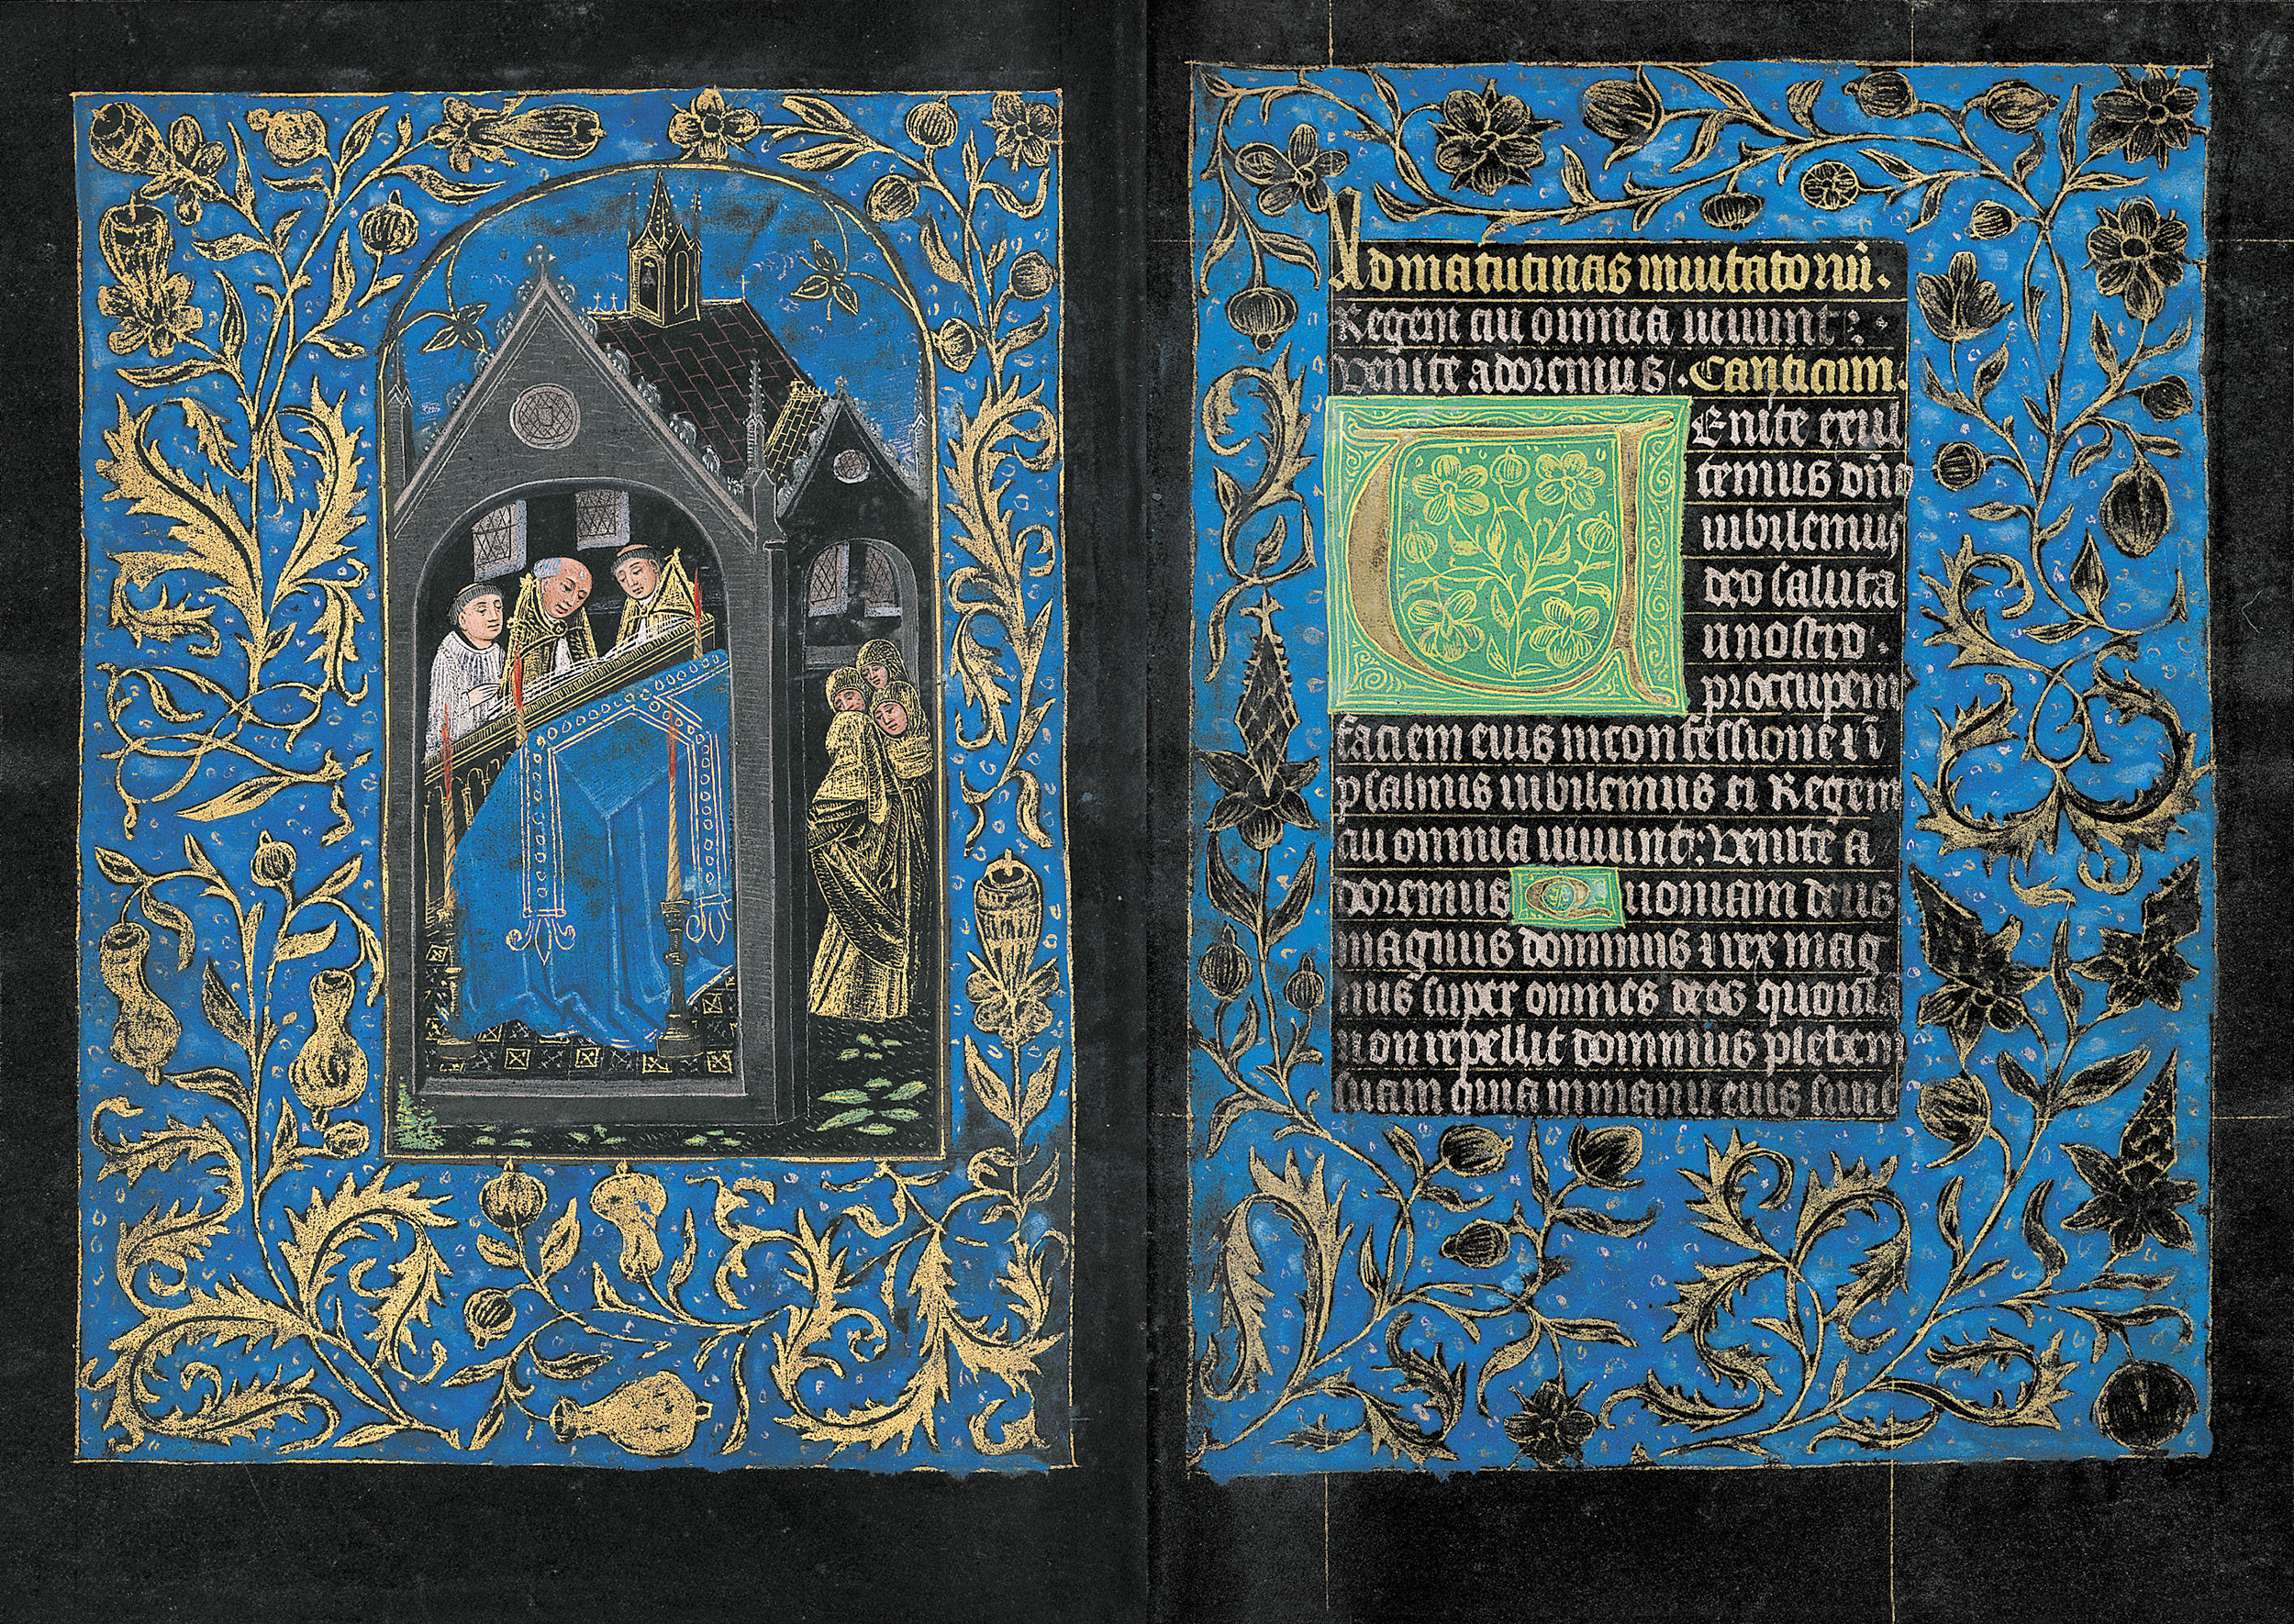 Ad matutinas inuitatoriū.
Regem cui omnia uiuunt:
Venite adoremus. Canticum.
Uenite exul
temus dño
iubilemus
deo saluta
ri nostro.
preoccupemus
faciem eius in confessione et ī
psalmis iubilemus ei Regem
cui omnia uiuunt: Venite a
doremus Quoniam deus
magnus dominus et rex mag
nus super omnes deos quoniā
non repellit dominus plebem
suam quia in manu eius sunt